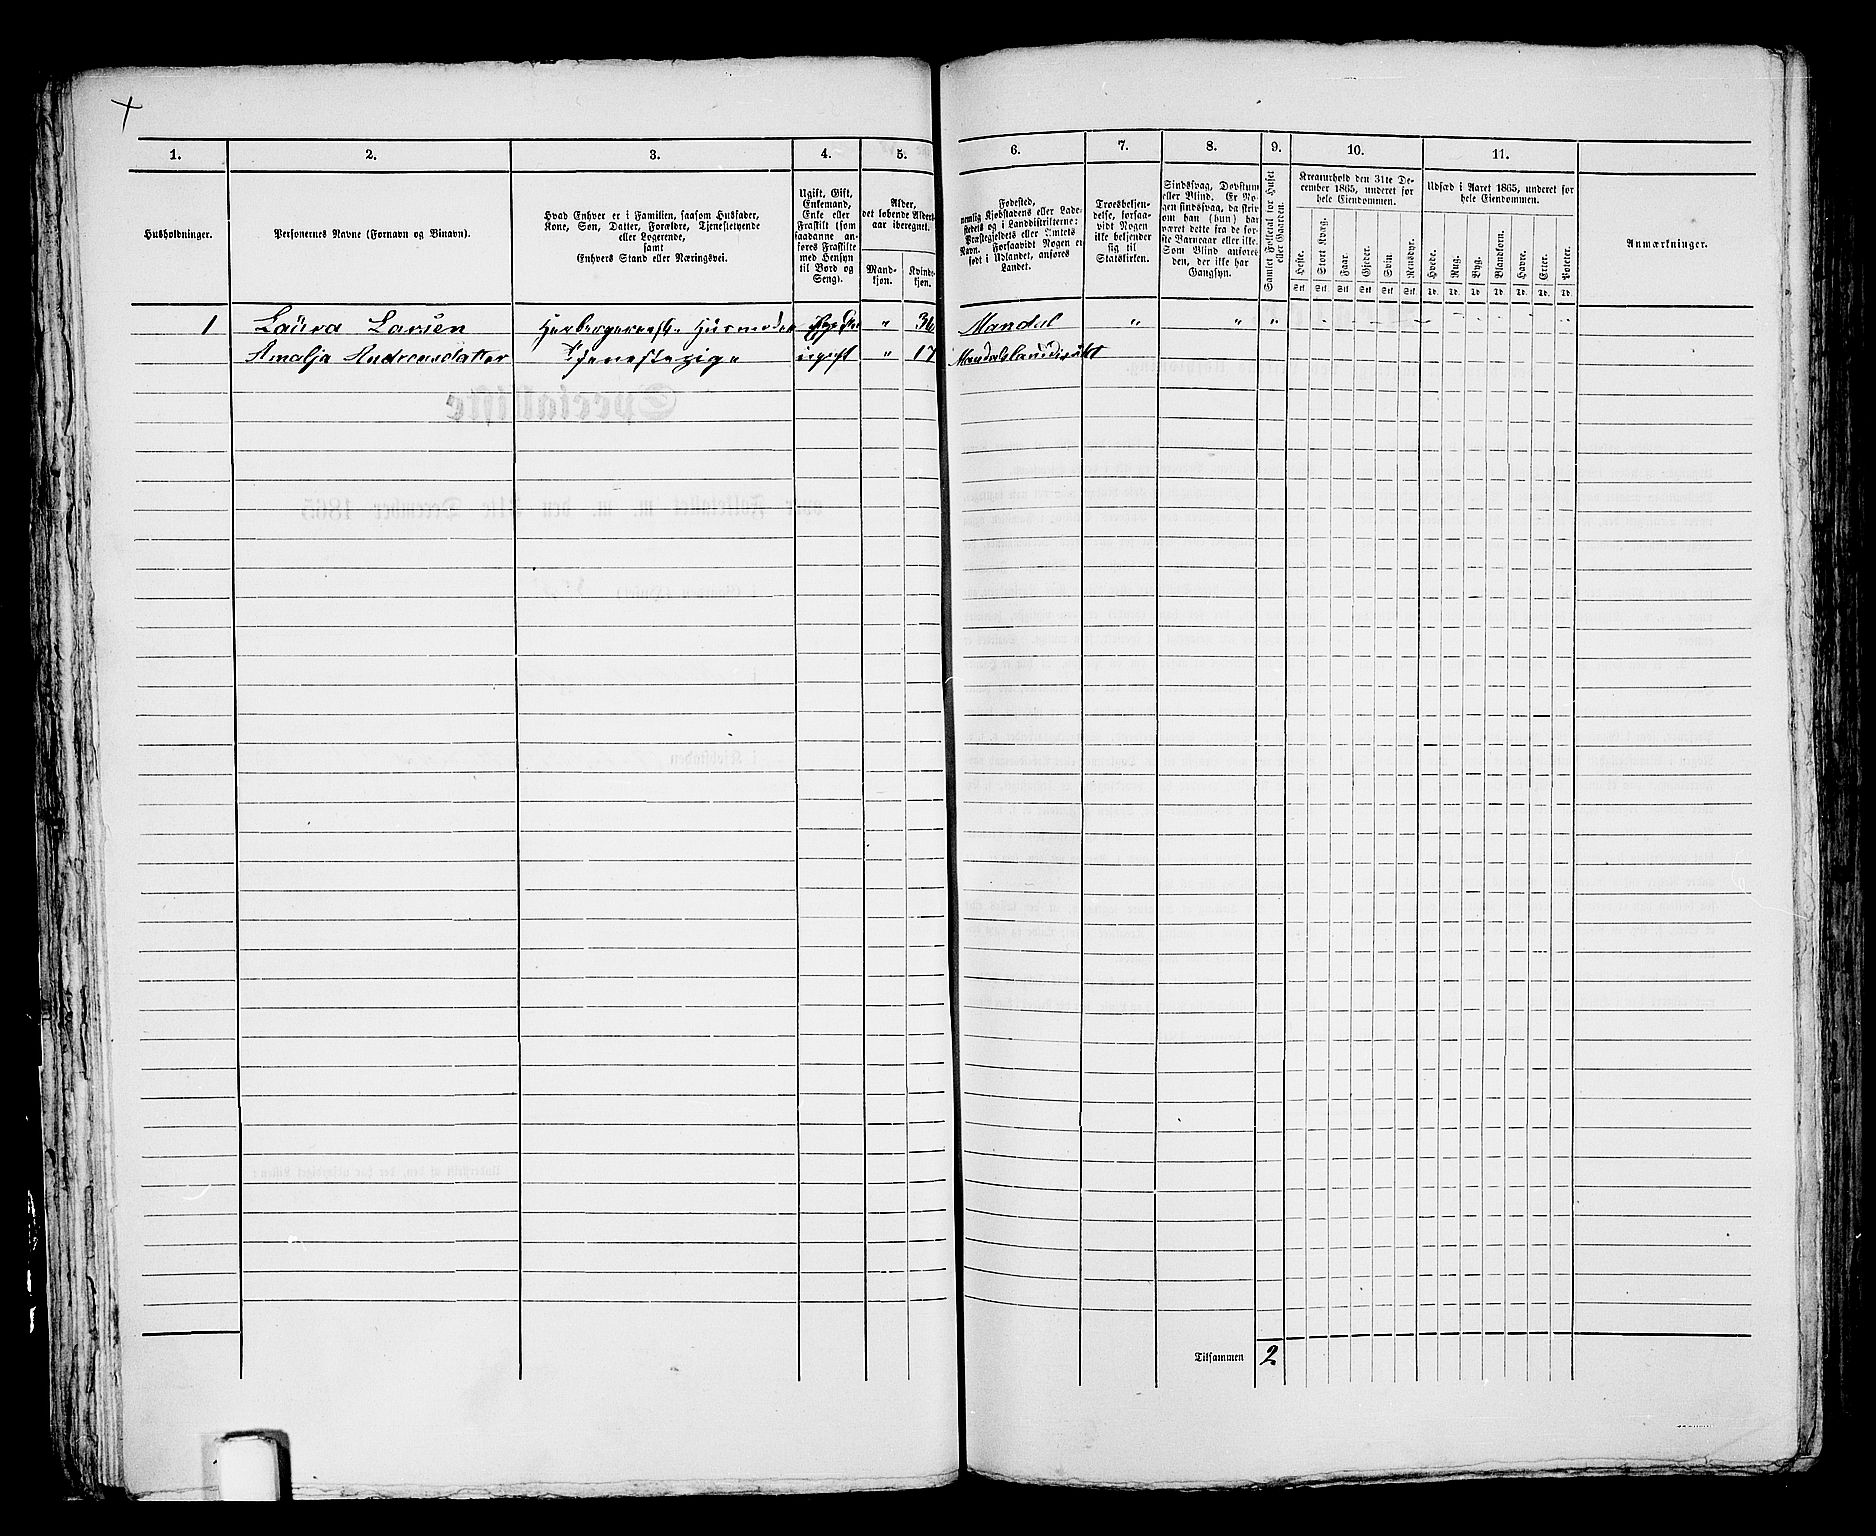 1. 2. 3. 4. 5. 6. 7. 8. 9. 10. 11.
Husholdninger.
Personernes Navne (Fornavn og Binavn).
Hvad Enhver er i Familien, saasom Husfader,
Kone, Søn, Datter, Forældre, Tjenestetyende
eller Logerende,
samt
Enhvers Stand eller Næringsvei.
Ugift, Gift,
Enkemand,
Enke eller
Fraskilt (som
saadanne an-
føres Fraskilte
med Hensyn
til Bord og
Seng).
Alder,
det løbende Alders-
aar iberegnet.
Mand-
kjøn.
Kvinde-
kjøn.
Fødested,
nemlig Kjøbstadens eller Lade-
stedets og i Landdistrikterne:
Præstegjeldets eller Amtets
Navn. Forsaavidt Nogen er
født i Udlandet, anføres
Landet.
Troesbekjen-
delse, forsaa-
vidt Nogen
ikke bekjender
sig til
Statskirken.
Sindssvag, Døvstum
eller Blind. Er No-
gen sindssvag, da skriv
om han (hun) har
været dette fra de før-
ste Barneaar eller ikke.
Som Blind anføres
den, der ikke har
Gangsyn.
Samlet Folketal for Huset
eller Gaarden.
Kreaturhold den 31te De-
cember 1865, underet for
hele Eiendommen.
Heste. Stort Kvæg. Faar. Gjeder. Svin. Rensdyr.
Stk. Stk. Stk. Stk. Stk. Stk.
Udsæd i Aaret 1865, underet for
hele Eiendommen.
Hvede. Rug. Byg. Blandkorn. Havre. Erter. Poteter.
Td. Td. Td. Td. Td. Td. Td.
Anmærkninger.
1 Laura Larsen Husmoder " 36 Mandal " " "
Amalja Andreasdatter Tjenestepige ugift " 17
Tilsammen 2